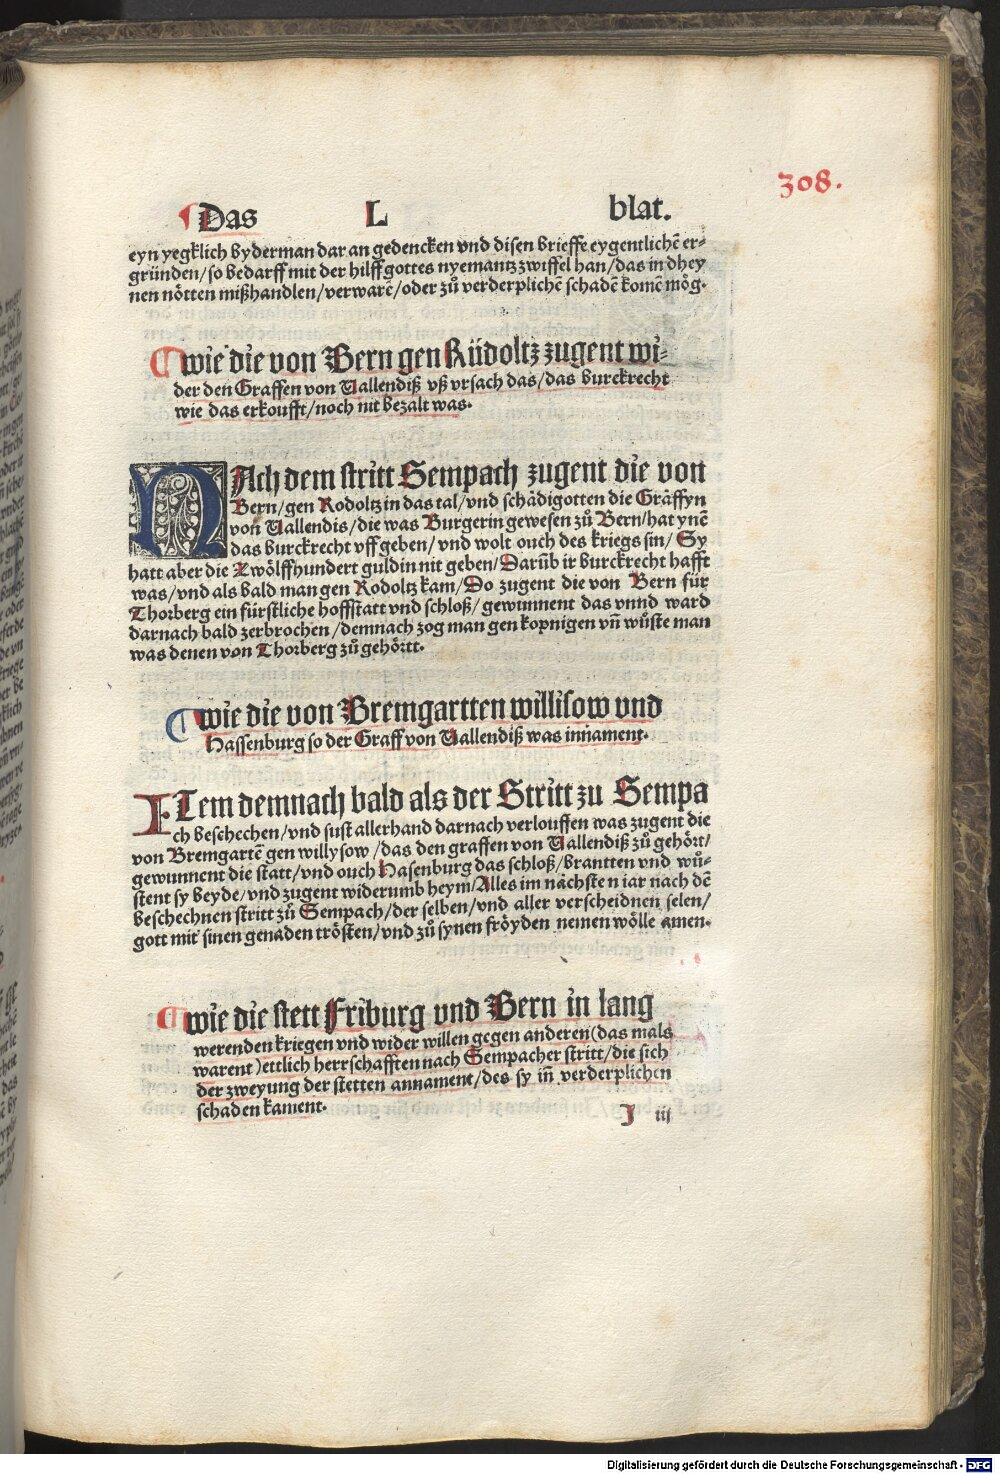 308.
Das L blat.
eyn yegklich byderman dar an gedencken vnd disen brieffe eygentlichē er-
gründen/so bedarff mit der hilff gottes nyemantz zwiffel han/das in dhey
nen nötten mißhandlen/verwarē/oder zů verderplichē schadē komē mög.
wie die von Bern gen Rüdoltz zugent wi-
der den Graffen von Vallendiß vß vrsach das/das burckrecht
wie das erkoufft/noch nit bezalt was.
NAch dem stritt Sempach zugent die von
Bern/gen Rodoltz in das tal/vnd schädigotten die Gräffyn
von Vallendis/die was Burgerin gewesen zů Bern/hat ynē
das burckrecht vff geben/vnd wolt ouch des kriegs sin/Sy
hatt aber die Zwölffhundert guldin nit geben/Darūb ir burckrecht hafft
was/vnd als bald man gen Rodoltz kam/Do zugent die von Bern für
Thorberg ein fürstliche hoffstatt vnd schloß/gewunnent das vnnd ward
darnach bald zerbrochen/demnach zog man gen kopnigen vn̄ wůste man
was denen von Thorberg zů gehörtt.
wie die von Bremgartten willisow vnd
Hassenburg so der Graff von Vallendiß was innament.
ITem demnach bald als der Stritt zu Sempa
ch beschechen/vnd sust allerhand darnach verlouffen was zugent die
von Bremgartē gen willysow/das den graffen von Vallendiß zů gehört/
gewunnent die statt/vnd ouch Hasenburg das schloß/brantten vnd wů-
stent sy beyde/vnd zugent widerumb heym/Alles im nächsten iar nach dē
beschechnen stritt zů Sempach/der selben/vnd aller verscheidnen selen/
gott mit sinen genaden trösten/vnd zů synen fröyden nemen wölle amen.
wie die stett Friburg vnd Bern in lang
werenden kriegen vnd wider willen gegen anderen(das mals
warent)ettlich herrschafften nach Sempacher stritt/die sich
der zweyung der stetten annament/des sy in̄ verderplichen
schaden kament.
J iij
Digitalisierung gefördert durch die Deutsche Forschungsgemeinschaft - DFG